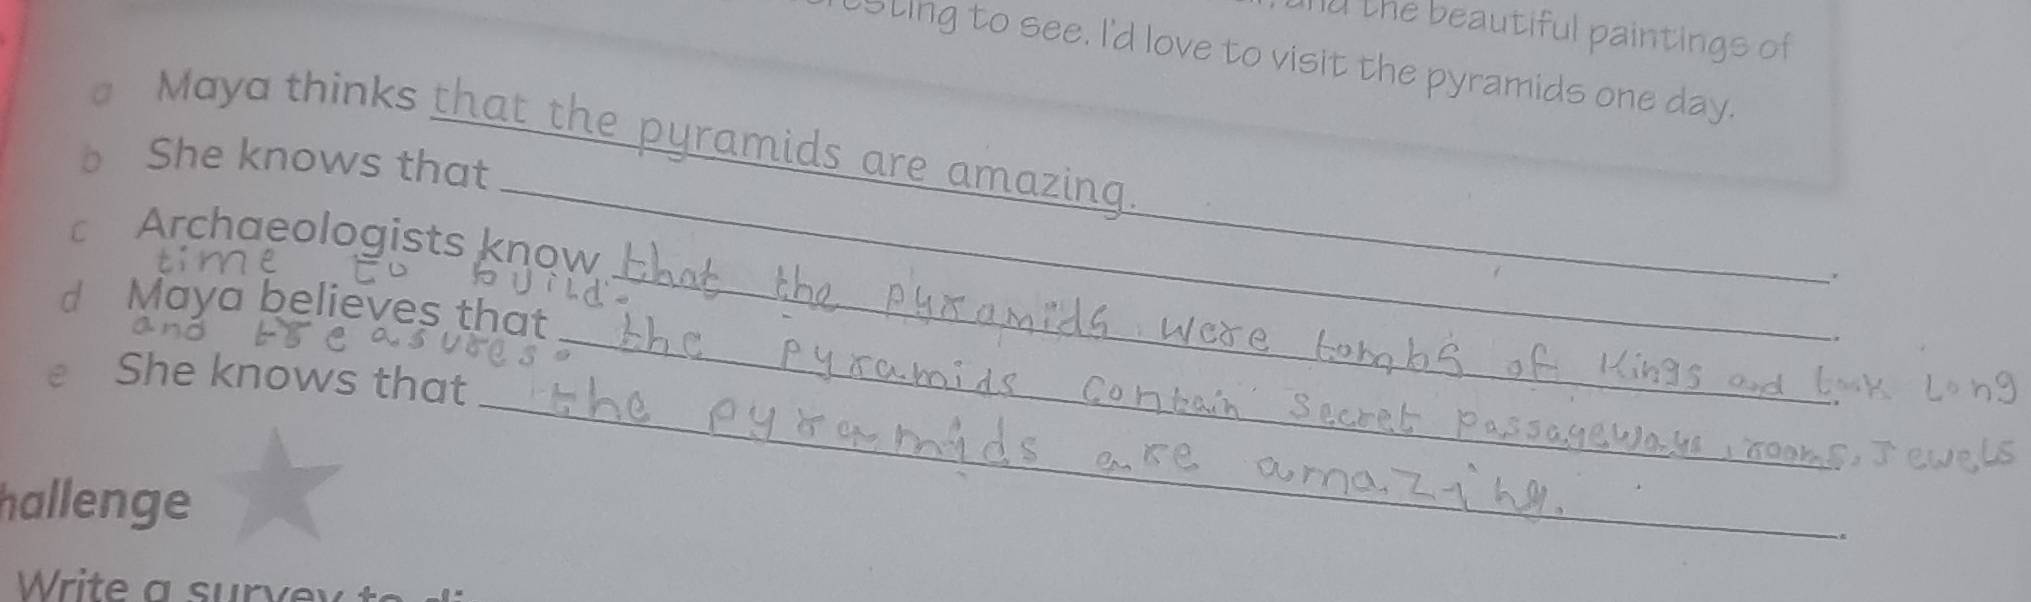 and the beautiful paintings of
to see. I'd love to visit the pyramids one day.
a Maya thinks that the pyramids are amazing.
b She knows that .
c Archaeologists know that the pyramids were tombs of Kings and took Long
time to build.
d Maya believes that the pyramids contain secret passageways, rooms, Jewels
and treasures.
e She knows that the pyramids are amazing.
hallenge
Write a survey to